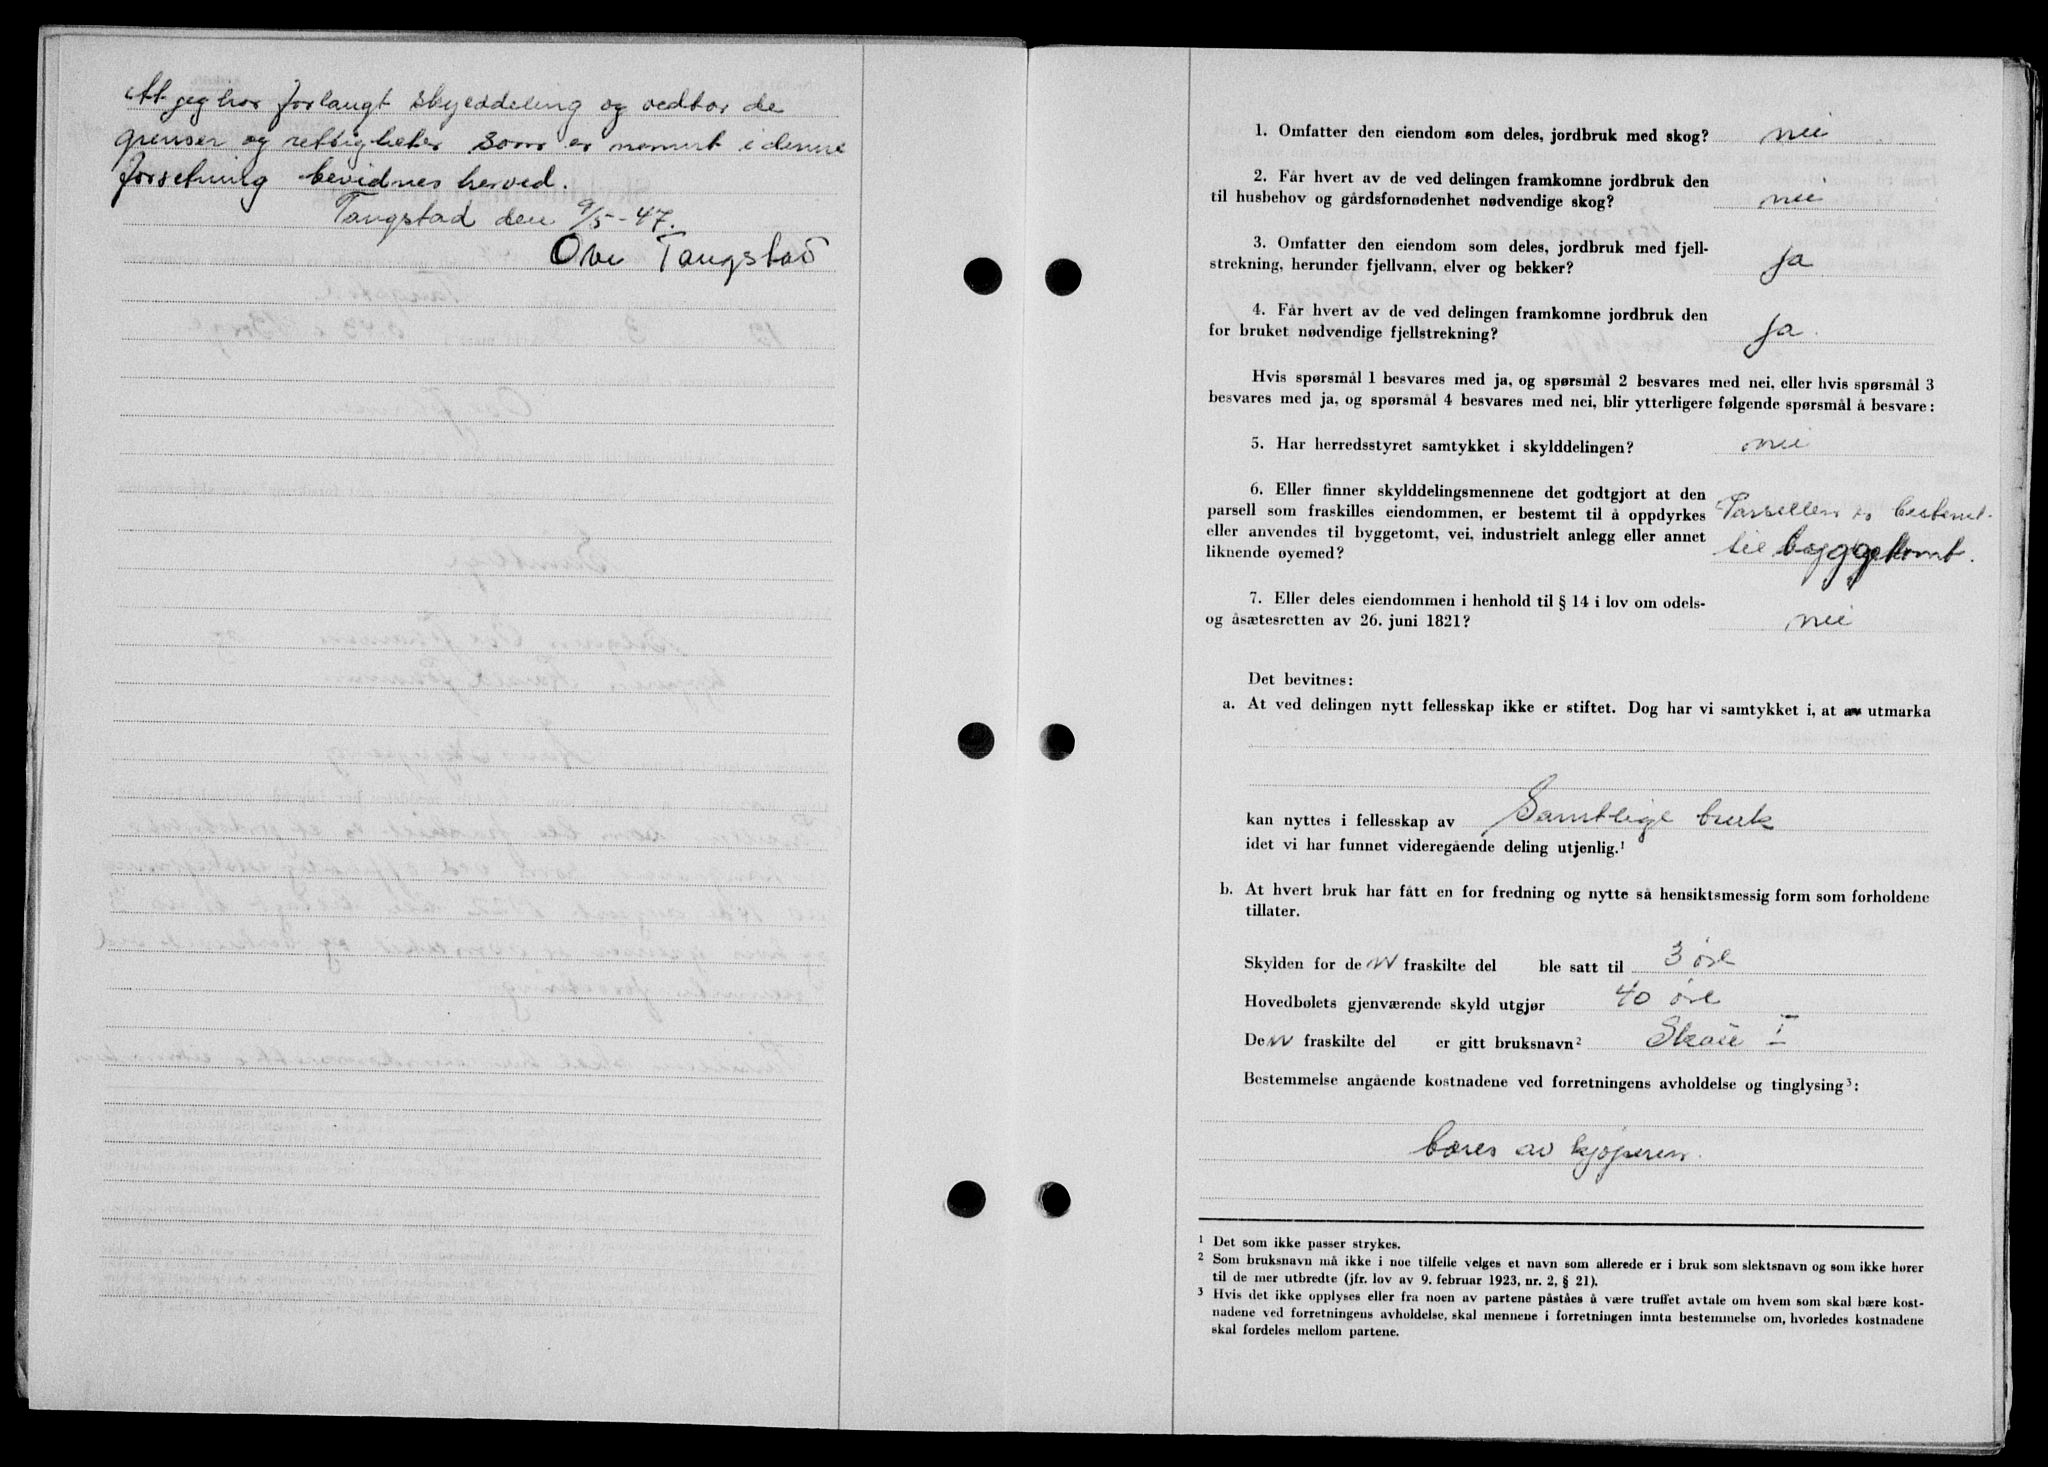 At jeg har forlangt skylddeling og vedtar de
grenser og rettigheter som er nevnt i denne
forretning bevidnes herved.
Tangstad den 9/5-47.
Ove Tangstad
1. Omfatter den eiendom som deles, jordbruk med skog? nei
2. Får hvert av de ved delingen framkomne jordbruk den
til husbehov og gårdsfornødenhet nødvendige skog? nei
3. Omfatter den eiendom som deles, jordbruk med fjell-
strekning, herunder fjellvann, elver og bekker? ja
4. Får hvert av de ved delingen framkomne jordbruk den
for bruket nødvendige fjellstrekning? ja.
Hvis spørsmål 1 besvares med ja, og spørsmål 2 besvares med nei, eller hvis spørsmål 3
besvares med ja, og spørsmål 4 besvares med nei, blir ytterligere følgende spørsmål å besvare:
5. Har herredsstyret samtykket i skylddelingen? nei
6. Eller finner skylddelingsmennene det godtgjort at den
parsell som fraskilles eiendommen, er bestemt til å oppdyrkes Parsellen er bestemt
eller anvendes til byggetomt, vei, industrielt anlegg eller annet til byggetomt.
liknende øyemed?
7. Eller deles eiendommen i henhold til § 14 i lov om odels-
og åsætesretten av 26. juni 1821? nei
Det bevitnes:
a. At ved delingen nytt fellesskap ikke er stiftet. Dog har vi samtykket i, at av utmarka
kan nyttes i fellesskap av Samtlige bruk
idet vi har funnet videregående deling utjenlig.¹
b. At hvert bruk har fått en for fredning og nytte så hensiktsmessig form som forholdene
tillater.
Skylden for den fraskilte del ble satt til 3 øre
Hovedbølets gjenværende skyld utgjør 40 øre
Den fraskilte del er gitt bruksnavn² I
Bestemmelse angående kostnadene ved forretningens avholdelse og tinglysing³:
bæres av kjøperen.
¹ Det som ikke passer strykes.
² Som bruksnavn må ikke i noe tilfelle velges et navn som allerede er i bruk som slektsnavn og som ikke hører
til de mer utbredte (jfr. lov av 9. februar 1923, nr. 2, § 21).
³ Hvis det ikke opplyses eller fra noen av partene påståes å være truffet avtale om hvem som skal bære kost-
nadene ved forretningens avholdelse, skal mennene i forretningen innta bestemmelse om, hvorledes kostnadene
skal fordeles mellom partene.